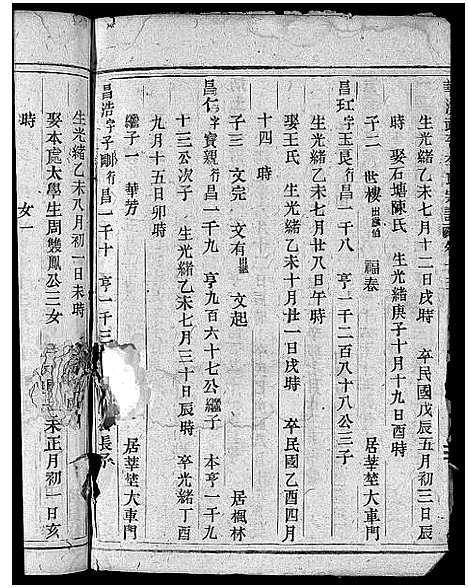 生光緒乙未五月十二日戌時 卒民國戊辰五月初三日辰
時 娶石塘陳氏 生光緒庚子十月十九日酉時
子二 世樓出繼伯 福春 居莘塋大車門
昌玒字玉良行昌一千八 亨一千二百八十八公三子
生光緒乙未七月廿八日午時
娶王氏 生光緒乙未十月廿一日戌時 卒民國乙酉四月
十四 時
子三 文完 文有出繼 文起 居楓林
昌仁字寶親行昌一千九 亨九百六十七公繼子 本亨一千九
十三公次子 生光緒乙未七月三十日辰時 卒光緒丁酉
九月十五日卯時
繼子一 華芳 居莘塋大車門
昌浩字子剛行昌一千十 亨一千三 長子
生光緒乙未八月初一日未時
娶本處大學生周雙鳳公三女 未正月初一日亥
時 女一